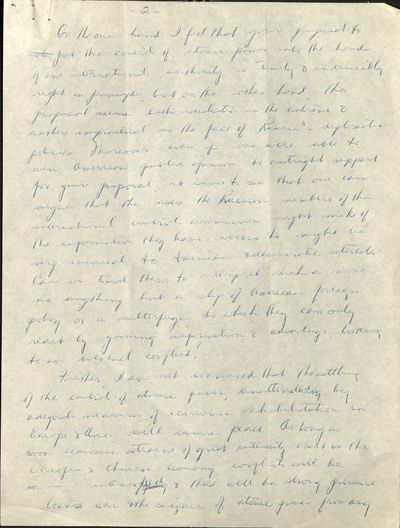 - 2 -
On the one hand I feel that your proposal to
for the control of atomic power into the hands
of an international authority is timely & undeniably
right in principle, but on the other hand the
proposal seems both idealistic in the extreme &
rather impractical in the face of Russia's diplomatic
policies. Moreover even if one were able to
win American public opinion to outright support
for your proposal, it seems to me that one can
argue that the uses the Russian members of the
international control commission might make of
the information they have access to might be
very inimical to American interests.
Can we trust them to interpret such a move
as anything but a ruse of American foreign
policy or a subterfuge, to which they can only
react by gaining information & advantage looking
to an eventual conflict?
Further, I am not convinced that the settling
of the control of atomic power, unattended by
adequate measures of economic rehabilitation in
Europe & Asia, will insure peace. As long as
economic strains of great intensity exist in the
European & Chinese economy, conflicts will be
& there will be strong pressure
toward war & the seizure of atomic power from any